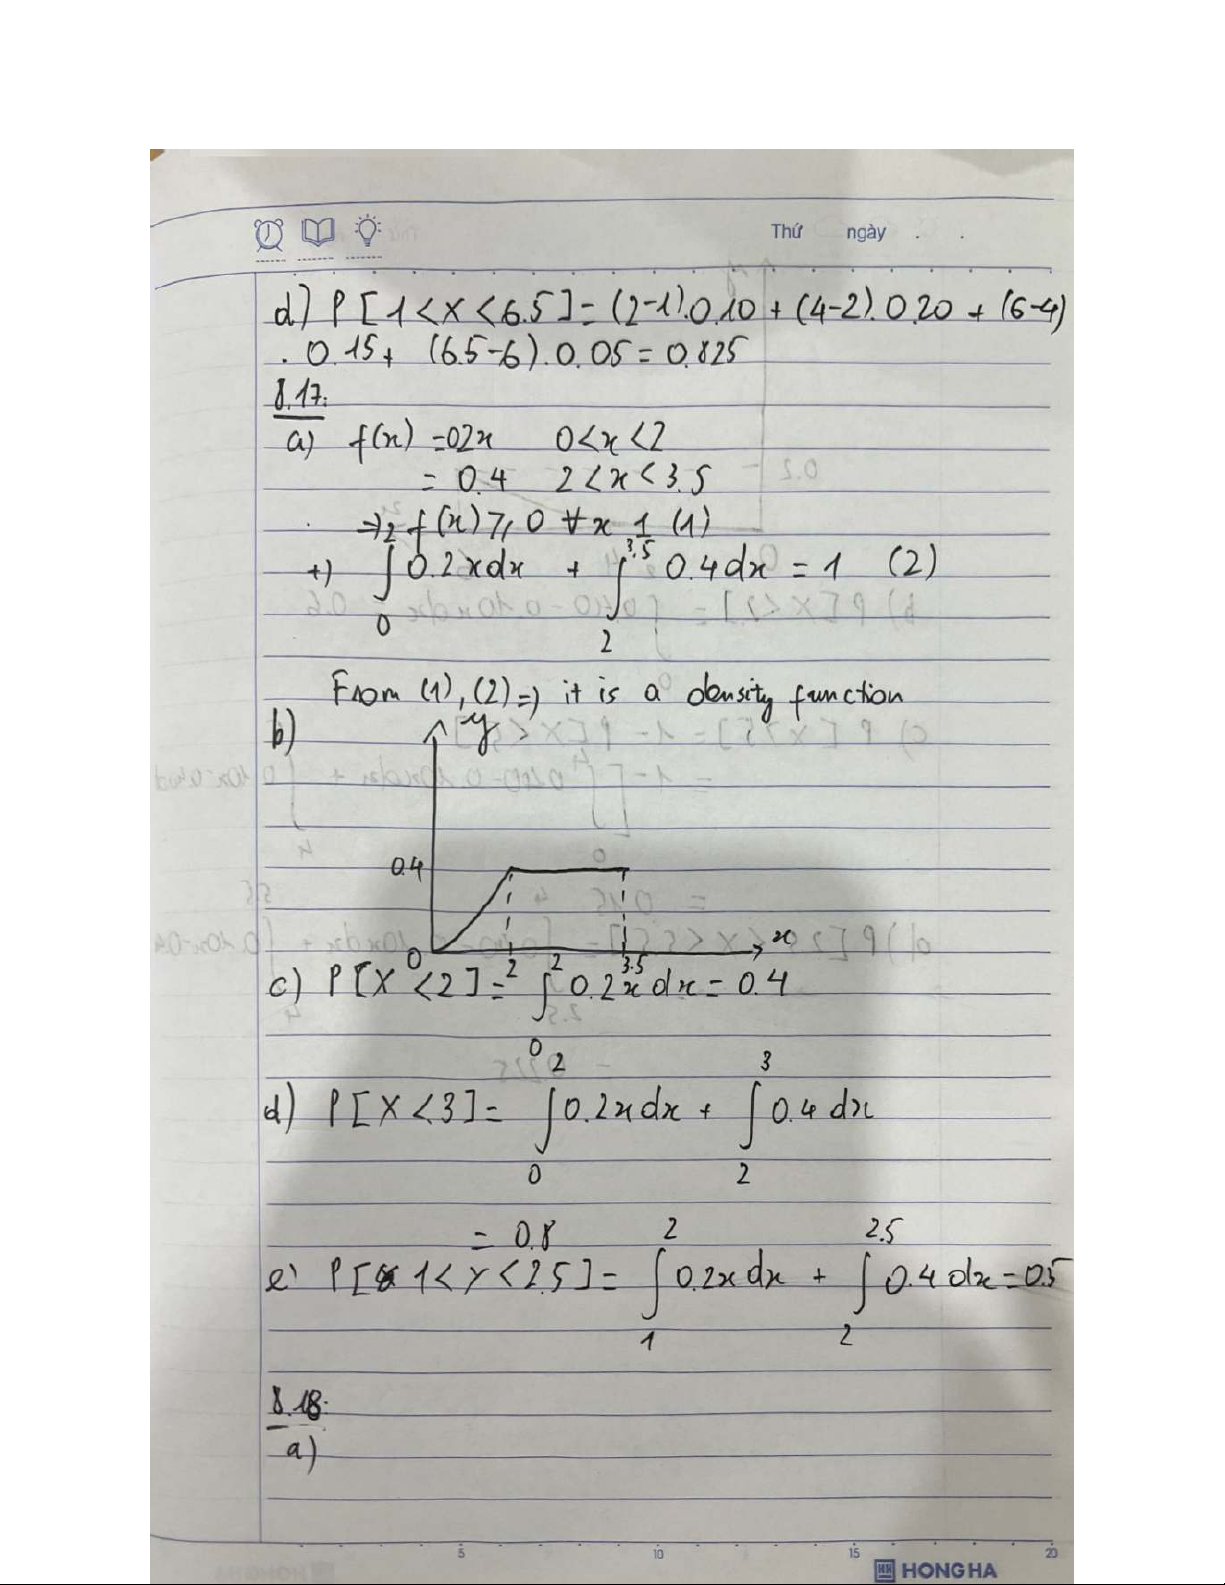 Thứ ngày . .
d) P[1<X<6.5]=(2-1).0.10+(4-2).0.20+(6-4)
.0.15+ (6.5-6).0.05=0.825
8.17:
a) f(x) =02x 0<x<2
= 0.4 2<x<3.5
=> f(x)≥0 ∀x (1)
+) ∫₀² 0.2xdx + ∫₂^3.5 0.4dx = 1 (2)
From (1),(2)=) it is a density function
b) y
0.4
0 0 2 3.5 x
c) P[X<2]= ∫₀² 0.2xdx=0.4
d) P[X<3]= ∫₀² 0.2xdx + ∫₂³ 0.4dx
= 0.8
e) P[1<X<2.5]= ∫₁² 0.2xdx + ∫₂^2.5 0.4dx=0.5
8.18:
a)
5 10 15 20
HONG HA